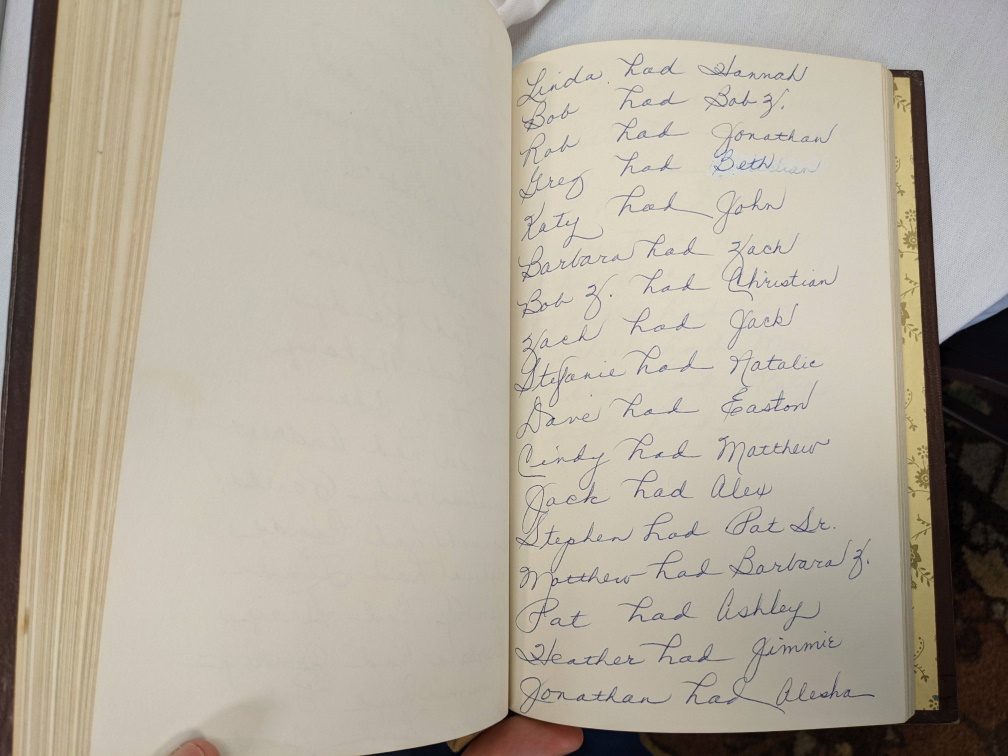 Linda had Hannah
Bob had Bob Z.
Rob had Jonathan
Greg had Beth
Katy had John
Barbara had Zach
Bob Z. had Christian
Zach had Jack
Stefanie had Natalie
Dave had Easton
Cindy had Matthew
Jack had Alex
Stephen had Pat Sr.
Matthew had Barbara Z.
Pat had Ashley
Heather had Jimmie
Jonathan had Alesha